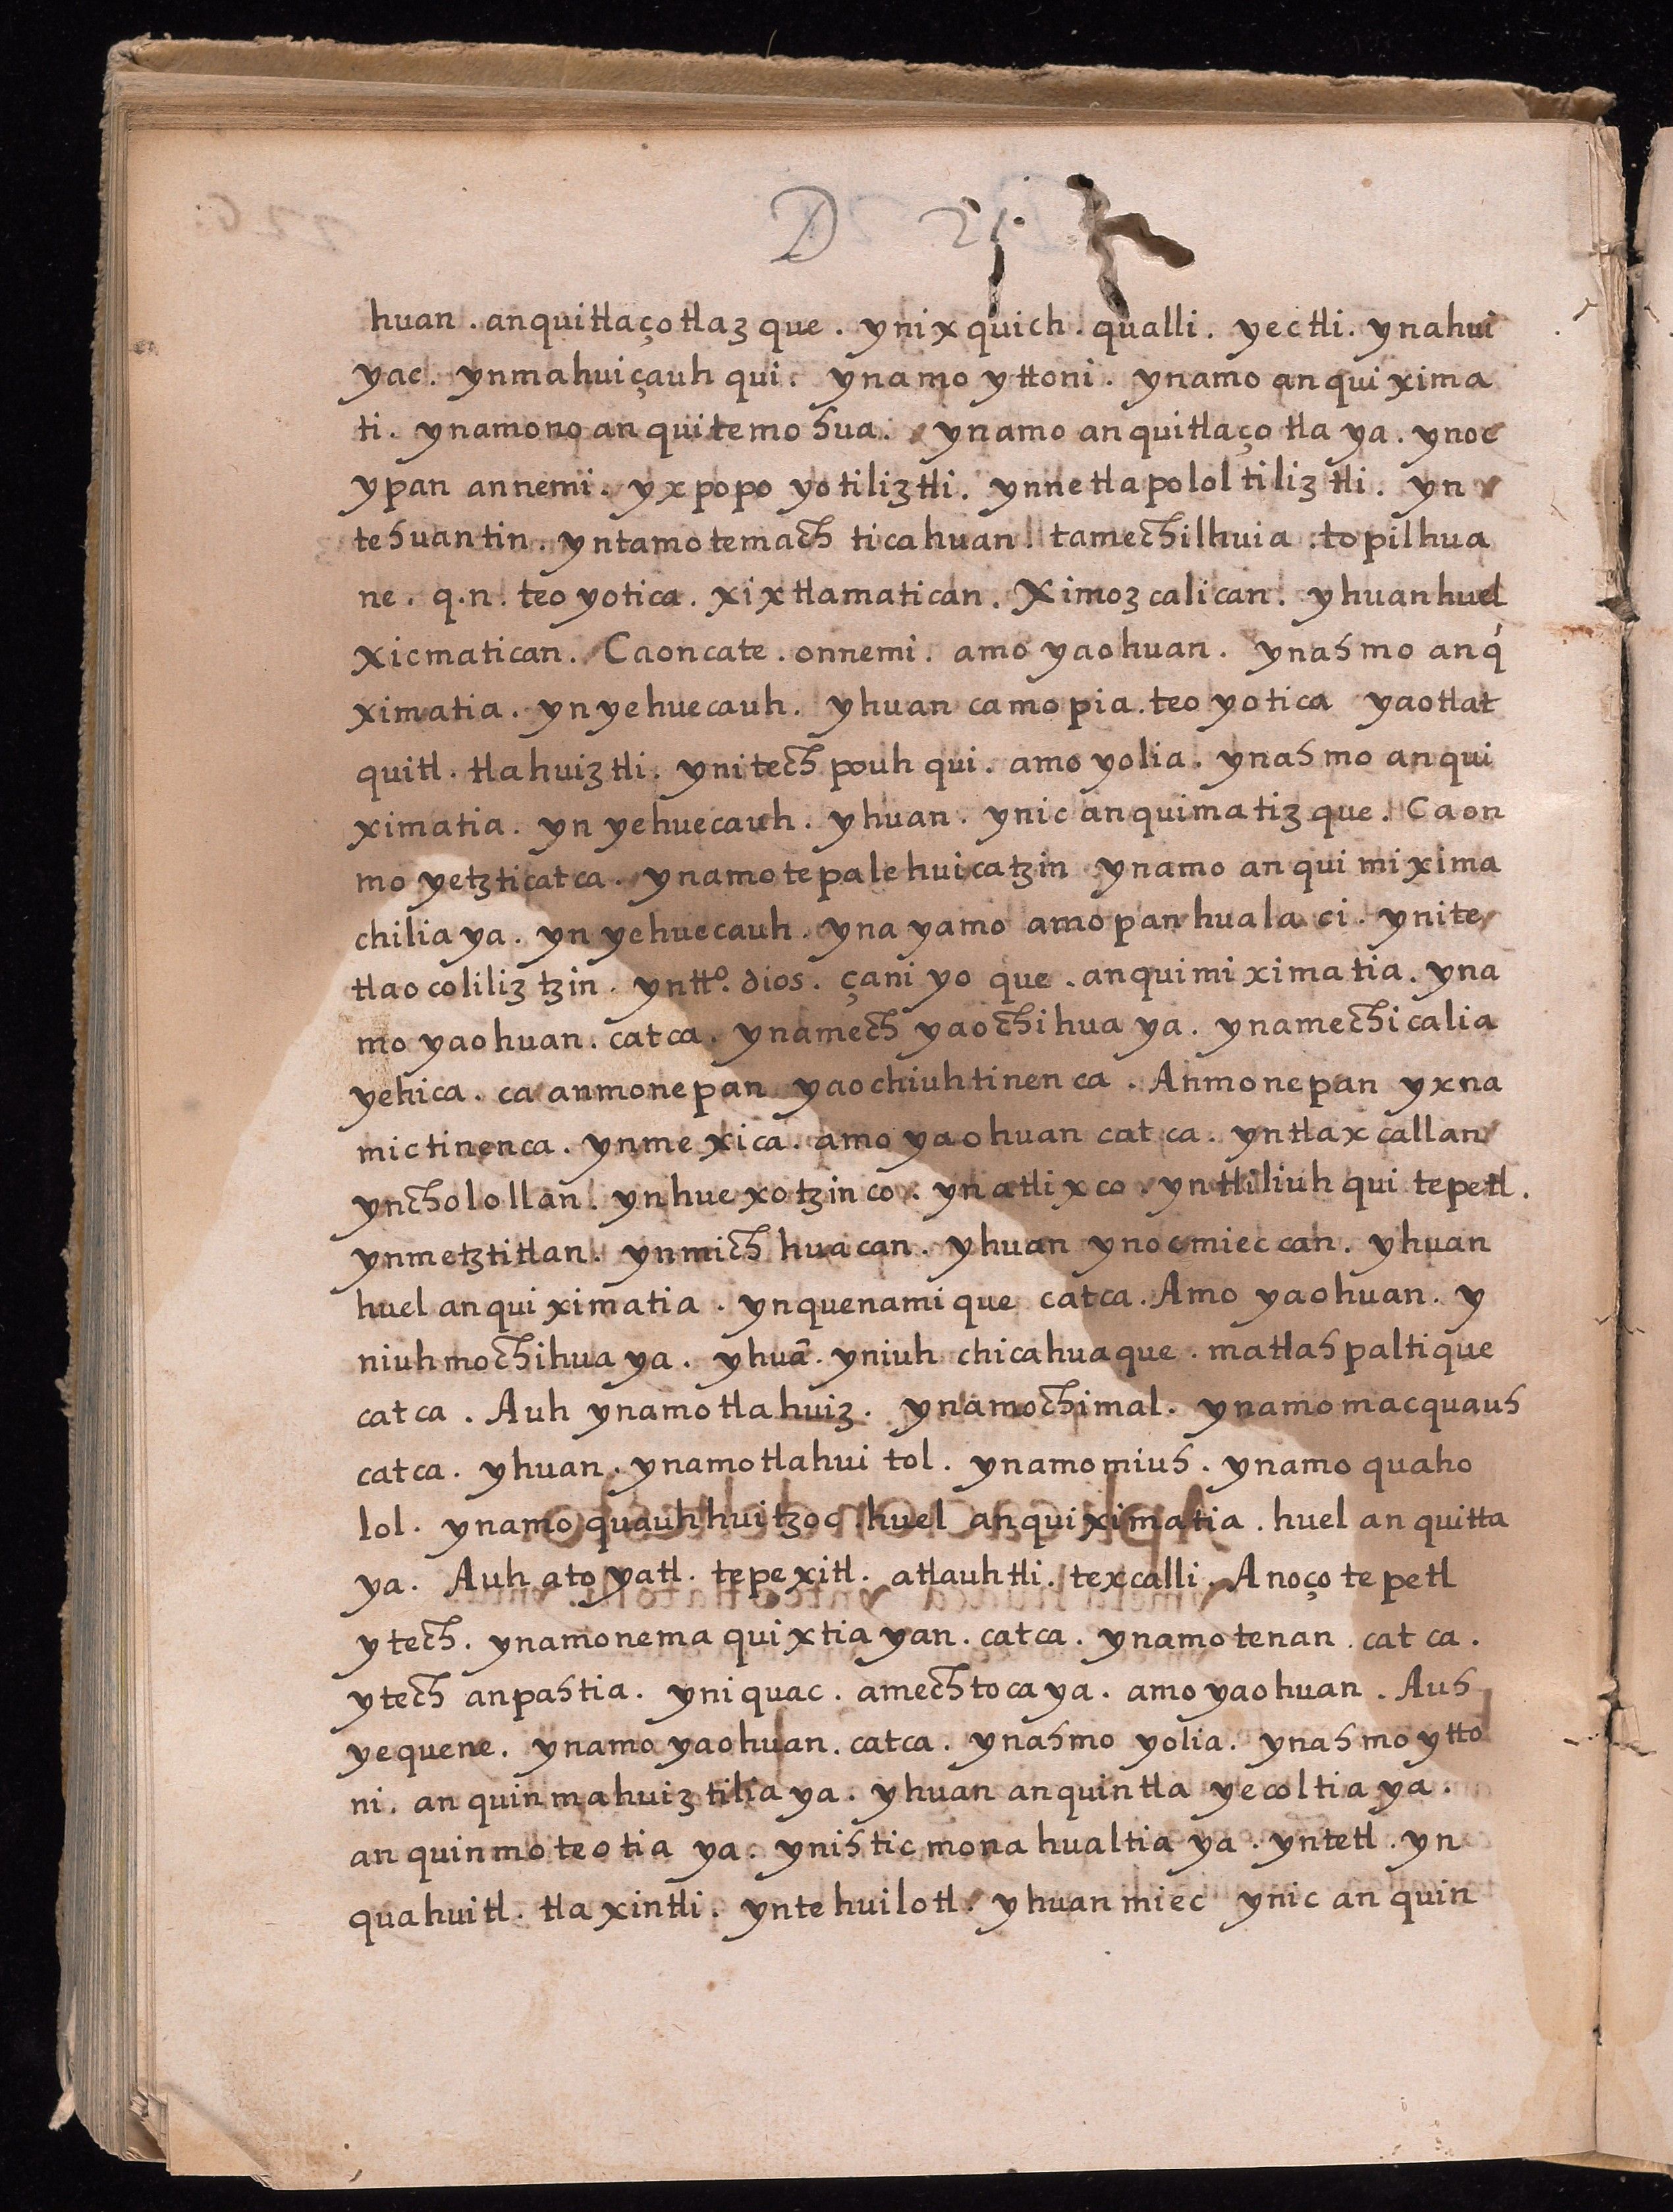 D 21
huan . anquitlaçotlazque . ynixquich . qualli . yectli . ynahui
yac . ynmahuiçauhqui . ynamo yttoni . ynamo anquixima
ti . ynamono anquitemohua . ynamo anquitlaçotlaya . ynoc
ypan annemi . yxpopoyotiliztli . ynnetlapololtiliztli . yn
tehuantin . yntamotemachticahuan . tamechilhuia . topilhua
ne . q.n. teoyotica . xixtlamatican . Ximozcalican . yhuan huel
xicmatican . Caoncate . onnemi . amoyaohuan . ynahmo anq́
ximatia . ynyehuecauh . yhuan camopia . teoyotica yaotlat
quitl . tlahuiztli . ynitechpouhqui . amoyolia . ynahmo anqui
ximatia . ynyehuecauh . yhuan . ynic anquimatizque . Caon
moyetzticatca . ynamotepalehuicatzin ynamo anquimixima
chiliaya . ynyehuecauh . ynayamo amopanhualaci . ynite
tlaocoliliztzin . yntt.º dios . çaniyoque . anquimiximatia . yna
moyaohuan . catca . ynamechyaochihuaya . ynamechicalia
yehica . ca anmonepan yaochiuhtinenca . Anmonepan yxna
mictinenca . ynmexica . amoyaohuan catca . yntlaxcallan
yncholollan . ynhuexotzinco . ynatlixco . yntliliuhquitepetl .
ynmetztitlan . ynmichhuacan . yhuan ynocmieccan . yhuan
huel anquiximatia . ynquenamique catca . Amoyaohuan . y
niuhmochihuaya . yhuā . yniuh chicahuaque . matlahpaltique
catca . Auh ynamotlahuiz . ynamochimal . ynamomacquauh
catca . yhuan . ynamotlahuitol . ynamomiuh . ynamoquaho
lol . ynamoquauhhuitzoc huel anquiximatia . huel anquitta
ya . Auh atoyatl . tepexitl . atlauhtli . texcalli . Anoço tepetl
ytech . ynamonemaquixtiayan . catca . ynamotenan . catca .
ytech anpahtia . yniquac . amechtocaya . amoyaohuan . Auh
yequene . ynamoyaohuan . catca . ynahmo yolia . ynahmo ytto
ni . anquinmahuiztiliaya . yhuan anquintlayecoltiaya .
anquinmoteotiaya . ynihticmonahualtiaya . yntetl . yn
quahuitl . tlaxintli . yntehuilotl . yhuan miec ynic anquin